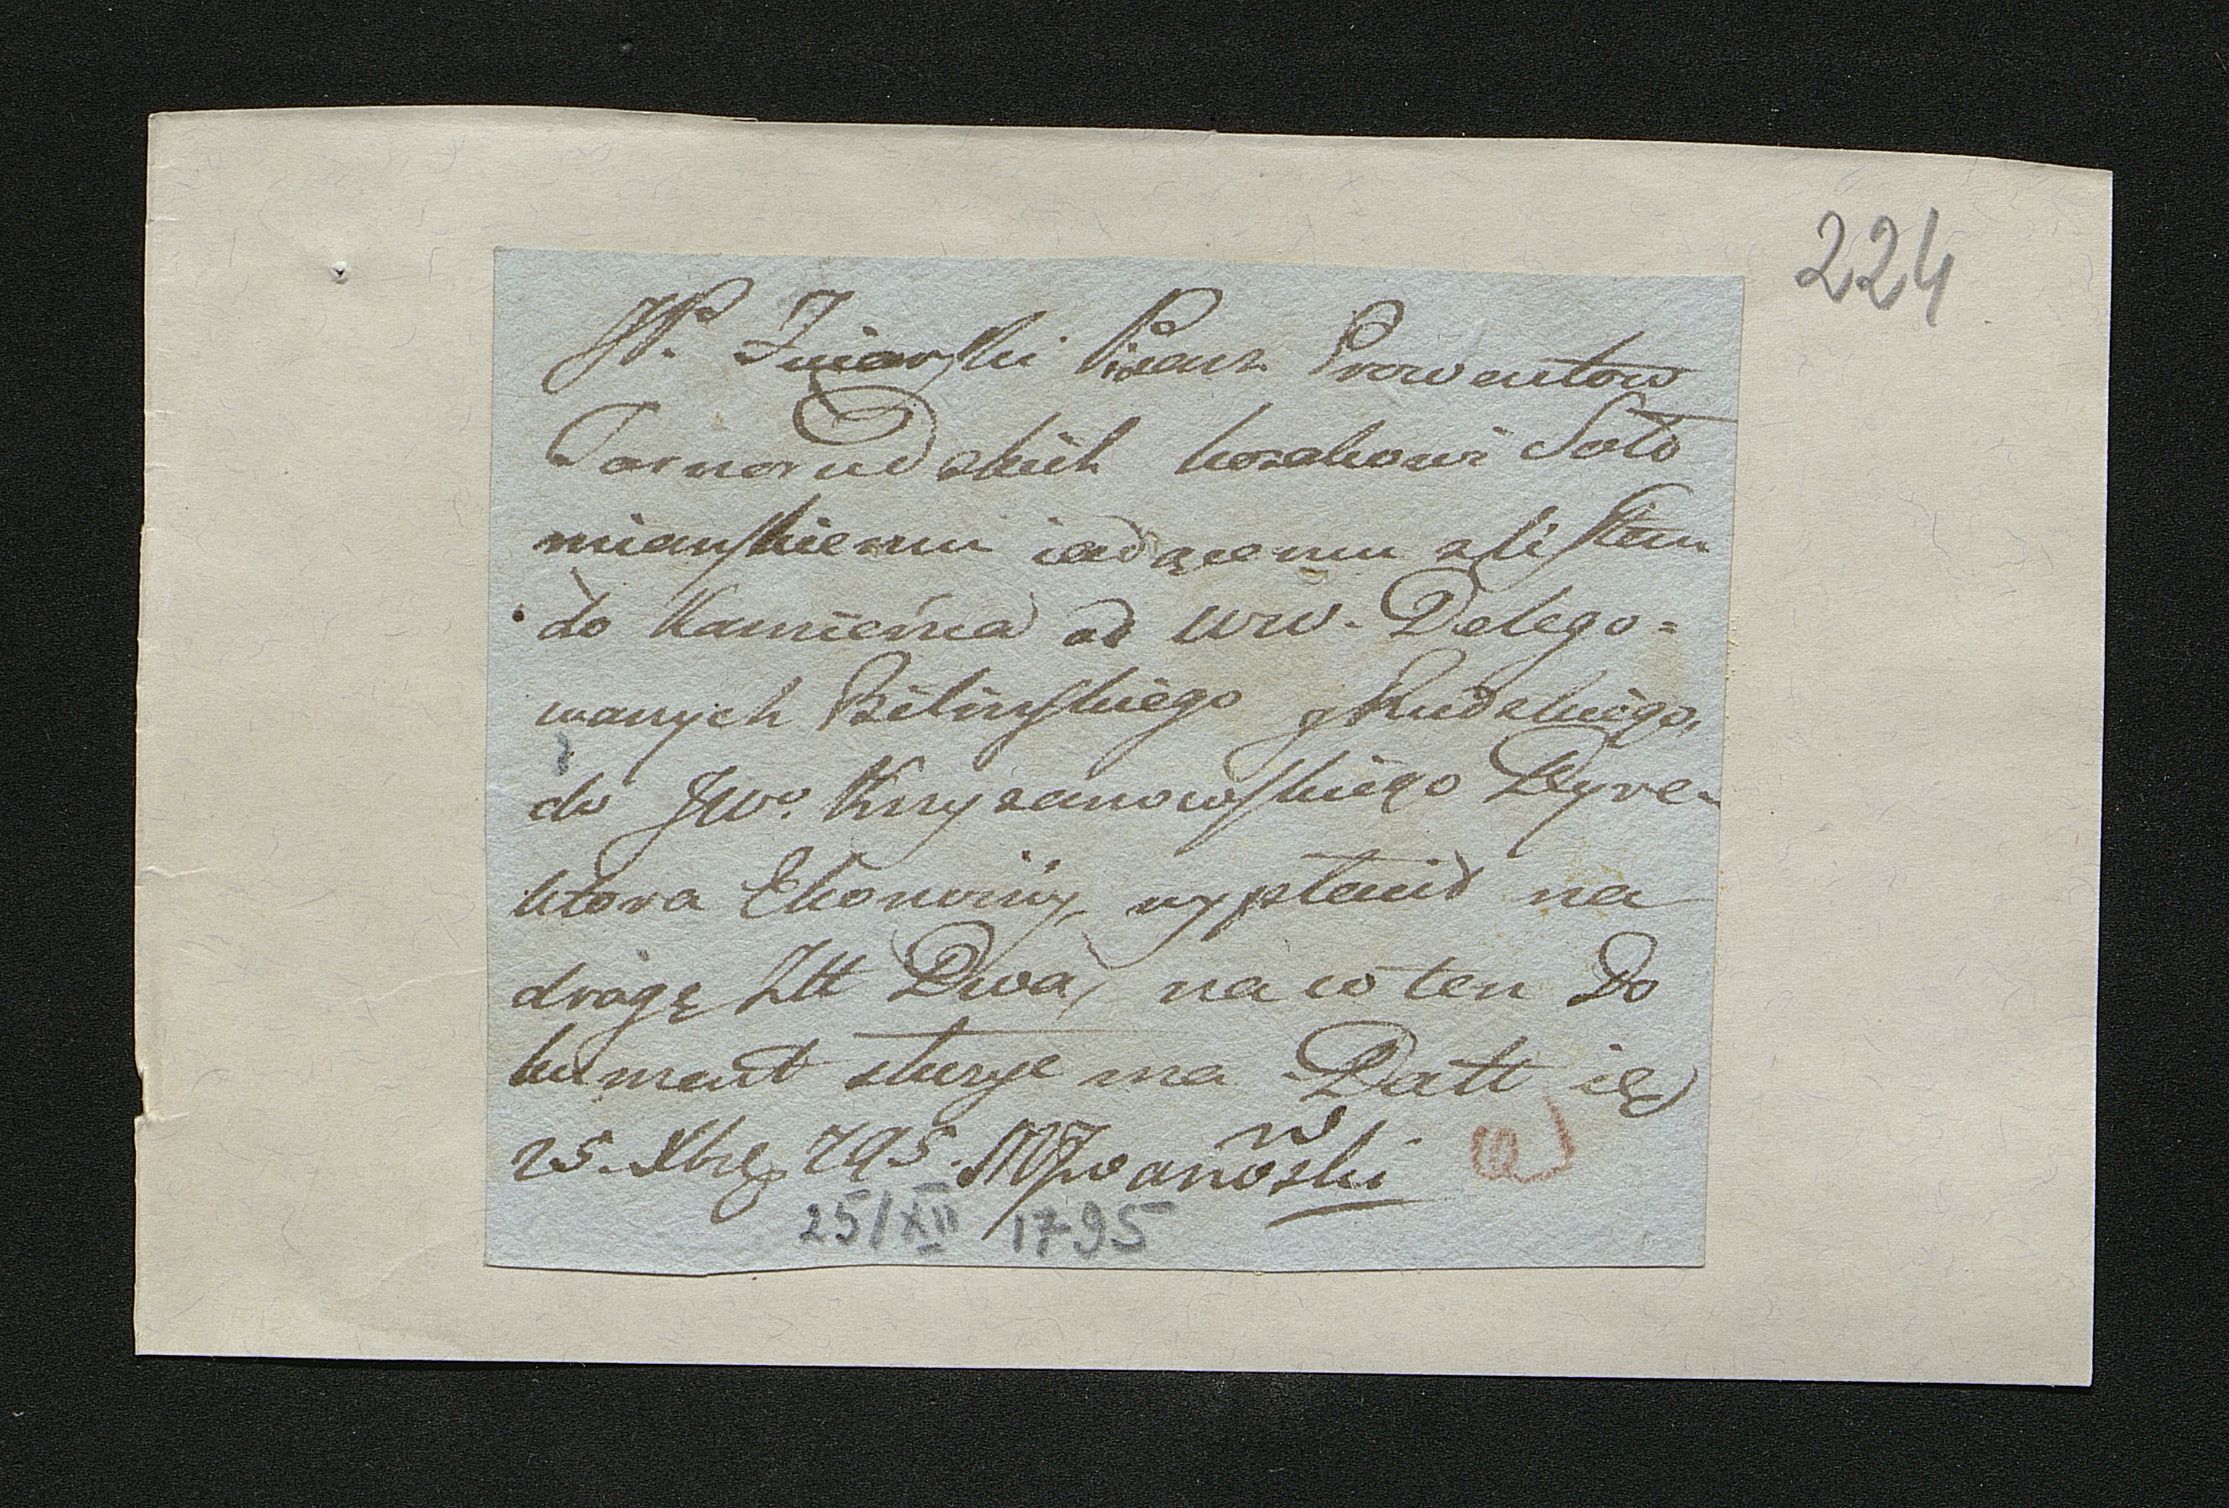 224
JP. Pisarz Prowentow
Tarnorudskich kozakowi Soło
mianskiemu iadącemu z listem
do Kamieńca od WW. Delego=
wanych Bilinskiego y Rudzkiego,
do JWo. Krzyzanowskiego Dyre-
ktora Ekonomiy, wypłacił na
drogę Złł Dwa, na co ten Do
kument służyć ma Datt
25. Xbrę 795. Jwanowski
25/XII 1795